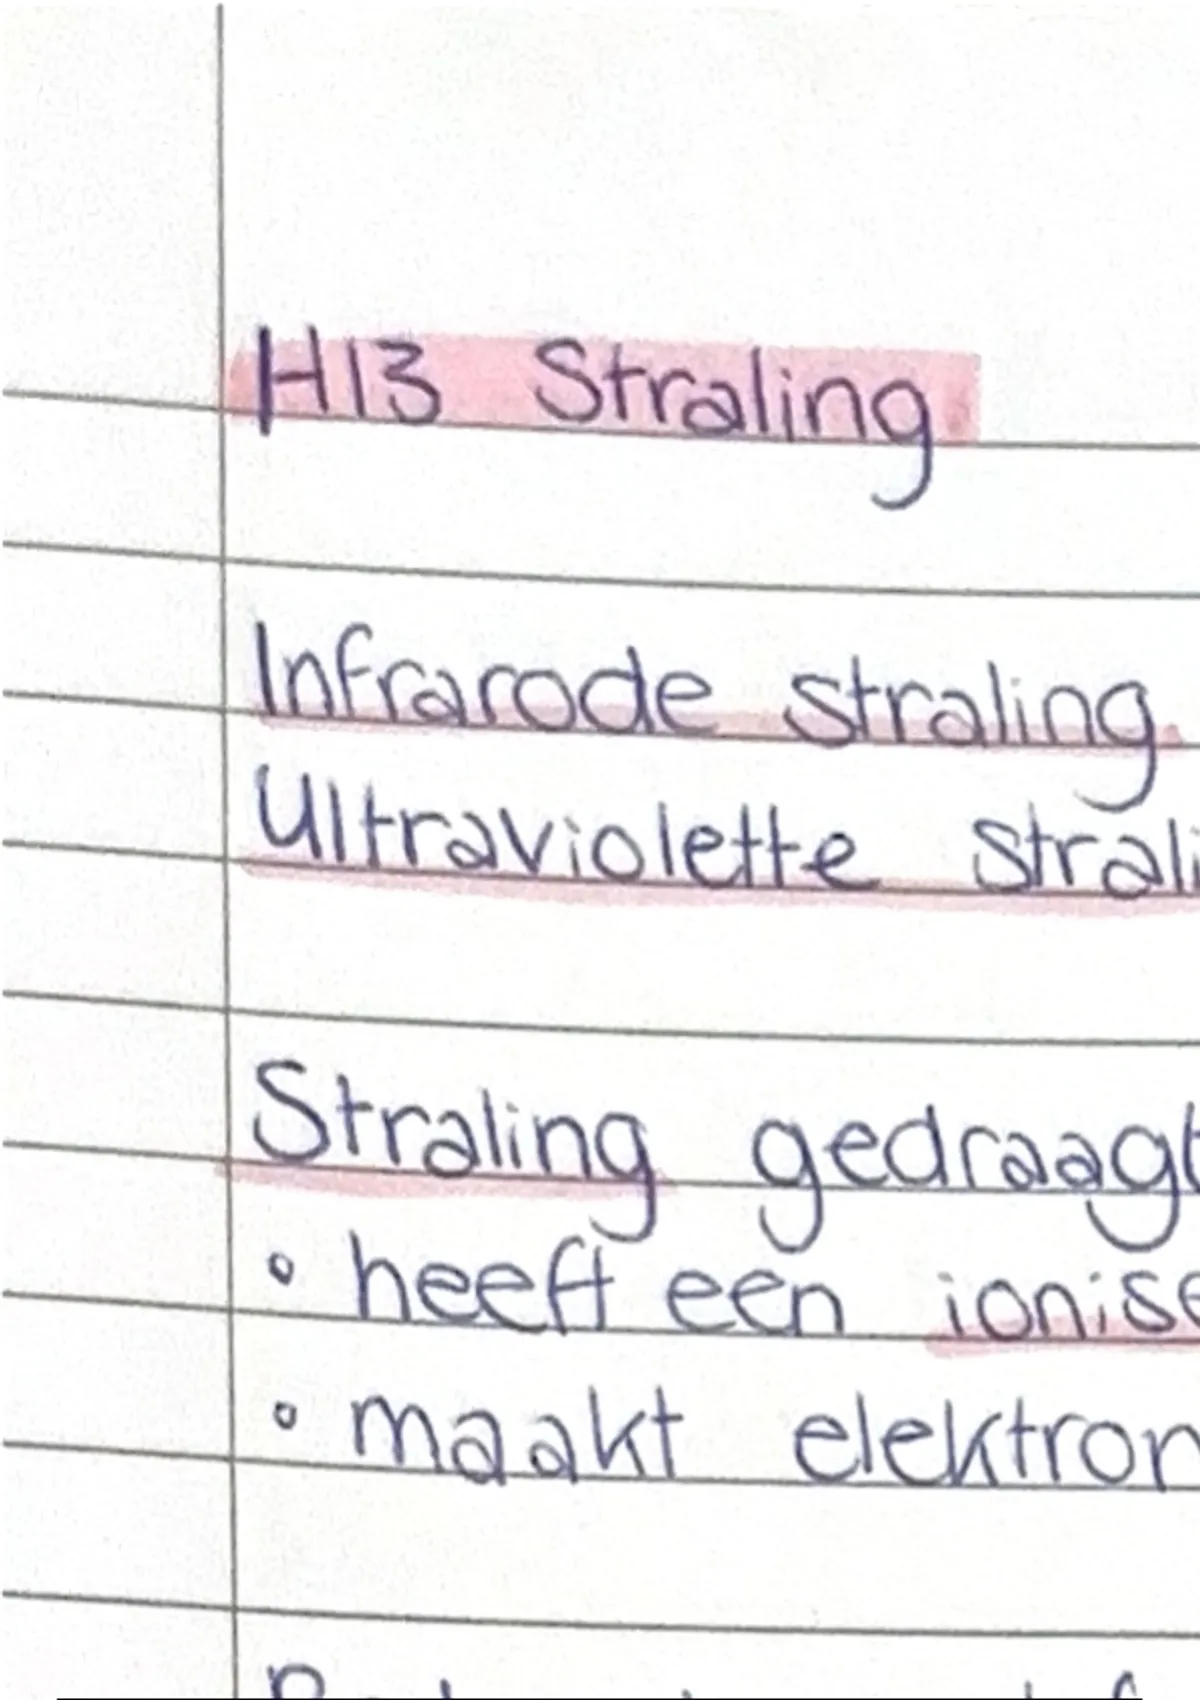 H13 Straling
Infrarode straling
Ultraviolette strali
Straling gedraagt
• heeft een ionise
• maakt elektron